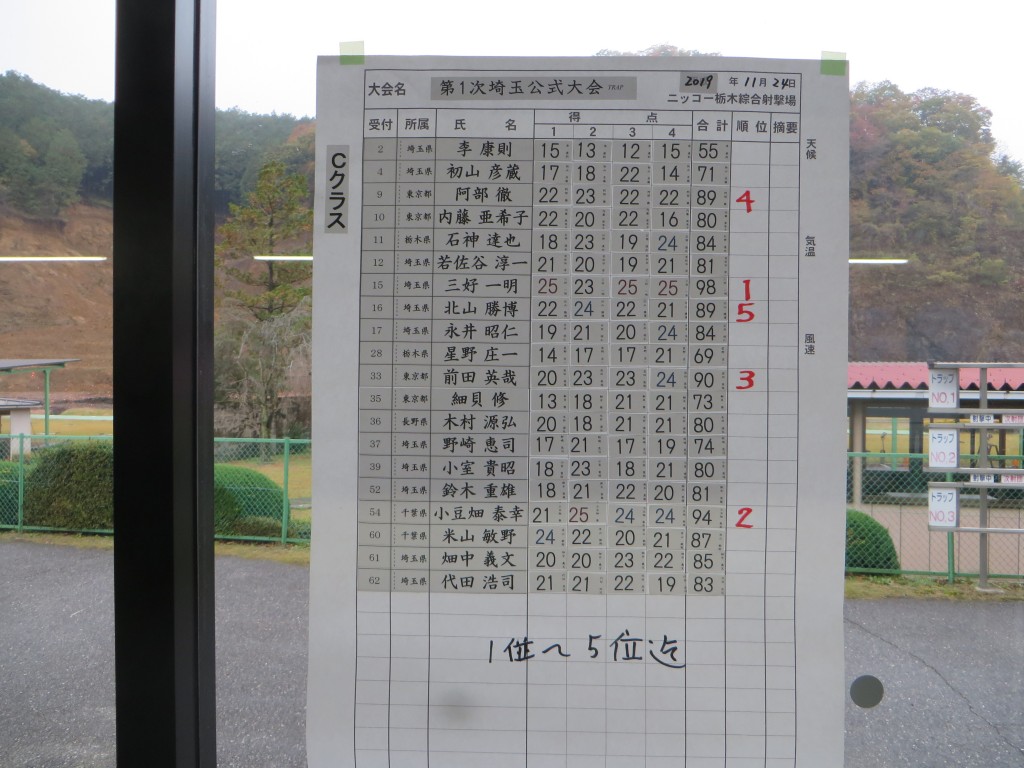 大会名 第1次埼玉公式大会 TRAP 2019年 11月 24日
ニッコー栃木綜合射撃場
受付 所属 氏 名 得 点 合計 順位 摘要
1 2 3 4
Cクラス
天候
気温
風速
2 埼玉県 李 康則 15 13 12 15 55
4 埼玉県 初山 彦蔵 17 18 22 14 71
9 東京都 阿部 徹 22 23 22 22 89 4
10 東京都 内藤 亜希子 22 20 22 16 80
11 栃木県 石神 達也 18 23 19 24 84
12 埼玉県 若佐谷 淳一 21 20 19 21 81
15 埼玉県 三好 一明 25 23 25 25 98 1
16 埼玉県 北山 勝博 22 24 22 21 89 5
17 埼玉県 永井 昭仁 19 21 20 24 84
28 栃木県 星野 庄一 14 17 17 21 69
33 東京都 前田 英哉 20 23 23 24 90 3
35 東京都 細貝 修 13 18 21 21 73
36 長野県 木村 源弘 20 18 21 21 80
37 埼玉県 野崎 恵司 17 21 17 19 74
39 埼玉県 小室 貴昭 18 23 18 21 80
52 埼玉県 鈴木 重雄 18 21 22 20 81
54 千葉県 小豆畑 泰幸 21 25 24 24 94 2
60 千葉県 米山 敏野 24 22 20 21 87
61 埼玉県 畑中 義文 20 20 23 22 85
62 埼玉県 代田 浩司 21 21 22 19 83
1位〜5位迄
トラップ
NO.1
射撃中
トラップ
NO.2
射撃中
トラップ
NO.3